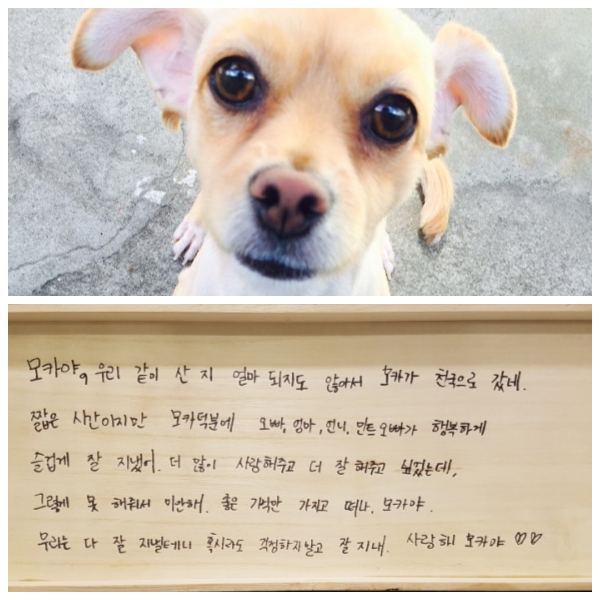 모카야, 우리 같이 산 지 얼마 되지도 않아서 모카가 천국으로 갔네.
짧은 시간이지만 모카덕분에 오빠, 엄마, 언니, 민트오빠가 행복하게
즐겁게 잘 지냈어. 더 많이 사랑해주고 더 잘 해주고 싶었는데,
그렇게 못 해줘서 미안해. 좋은 기억만 가지고 떠나. 모카야.
우리는 다 잘 지낼테니 혹시라도 걱정하지말고 잘 지내. 사랑해 모카야 ♡♡